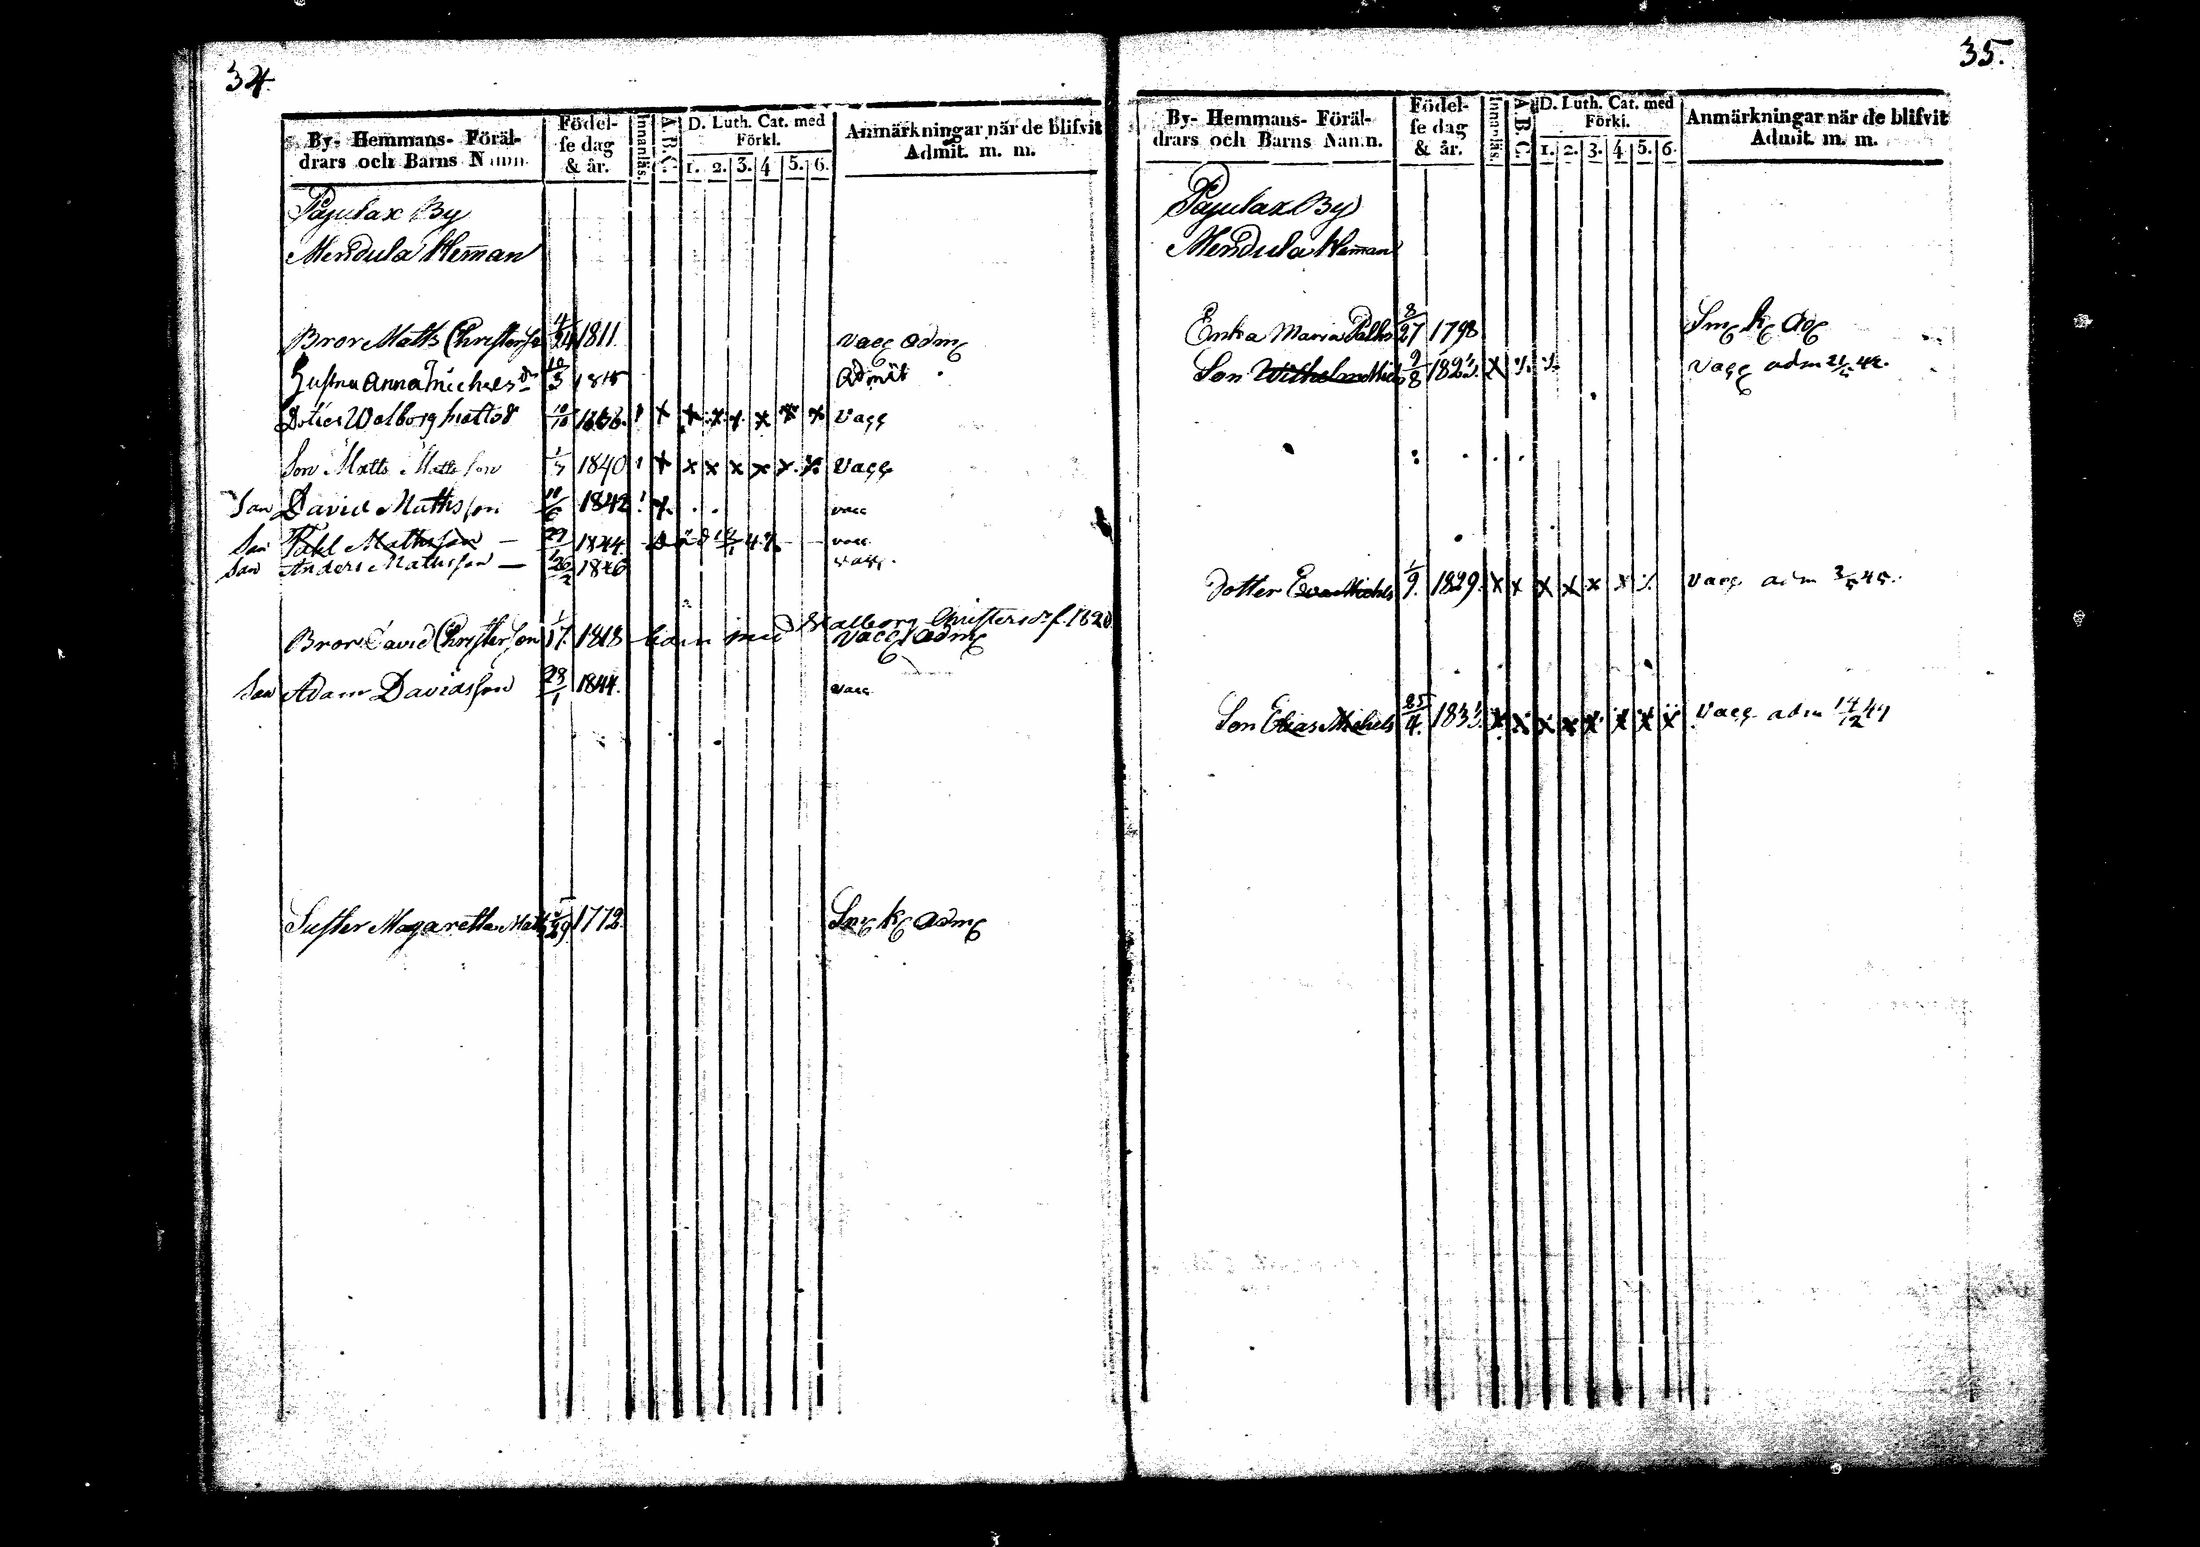 34.
By- Hemmans- Föräl-
drars och Barns Namn.
Födel-
se dag
& år.
Innanläs.
A.B.C.
D. Luth. Cat. med
Förkl.
1. 2. 3. 4 5. 6.
Anmärkningar när de blifvit
Admit. m. m.
Pajulax By
Mendula Heman
Bror Matts Christerson 4/24 1811. vacc adm
Hustru Anna Michelsdr 10/3 1815 Admit
Dotter Walborg Mattsd 10/10 1836. x x x x x x x vacc
Son Matts Mattsson 1/7 1840 x x x x x x x vacc
Son David Mathsson 10/6 1842 x vacc
Son Mathsson 29/1 1844. död 47. vacc
Son Anders Mathsson 26/2 1846 vacc.
Walborg Christersdr f. 1820
Bror David Christerson 1/17. 1818 barn med vacc adm
Son Adam Davidsson 28/1 1844. vacc
Syster Magaretha Matts 1772. k adm
35.
By- Hemmans- Föräl-
drars och Barns Namn.
Födel-
se dag
& år.
Innanläs.
A.B.C.
D. Luth. Cat. med
Förkl.
1. 2. 3. 4 5. 6.
Anmärkningar när de blifvit
Admit. m. m.
Pajulax By
Mendula Heman
Enka Maria 8/27 1798 k
Son Wilhelm Michels 9/8 x vacc adm 42.
Dotter Eva Michels 1/9. 1829. x x x x x x vacc adm 3/5 45.
Son Elias Michels 25/4. 1833. x x x x x x x x vacc adm 14/12 47